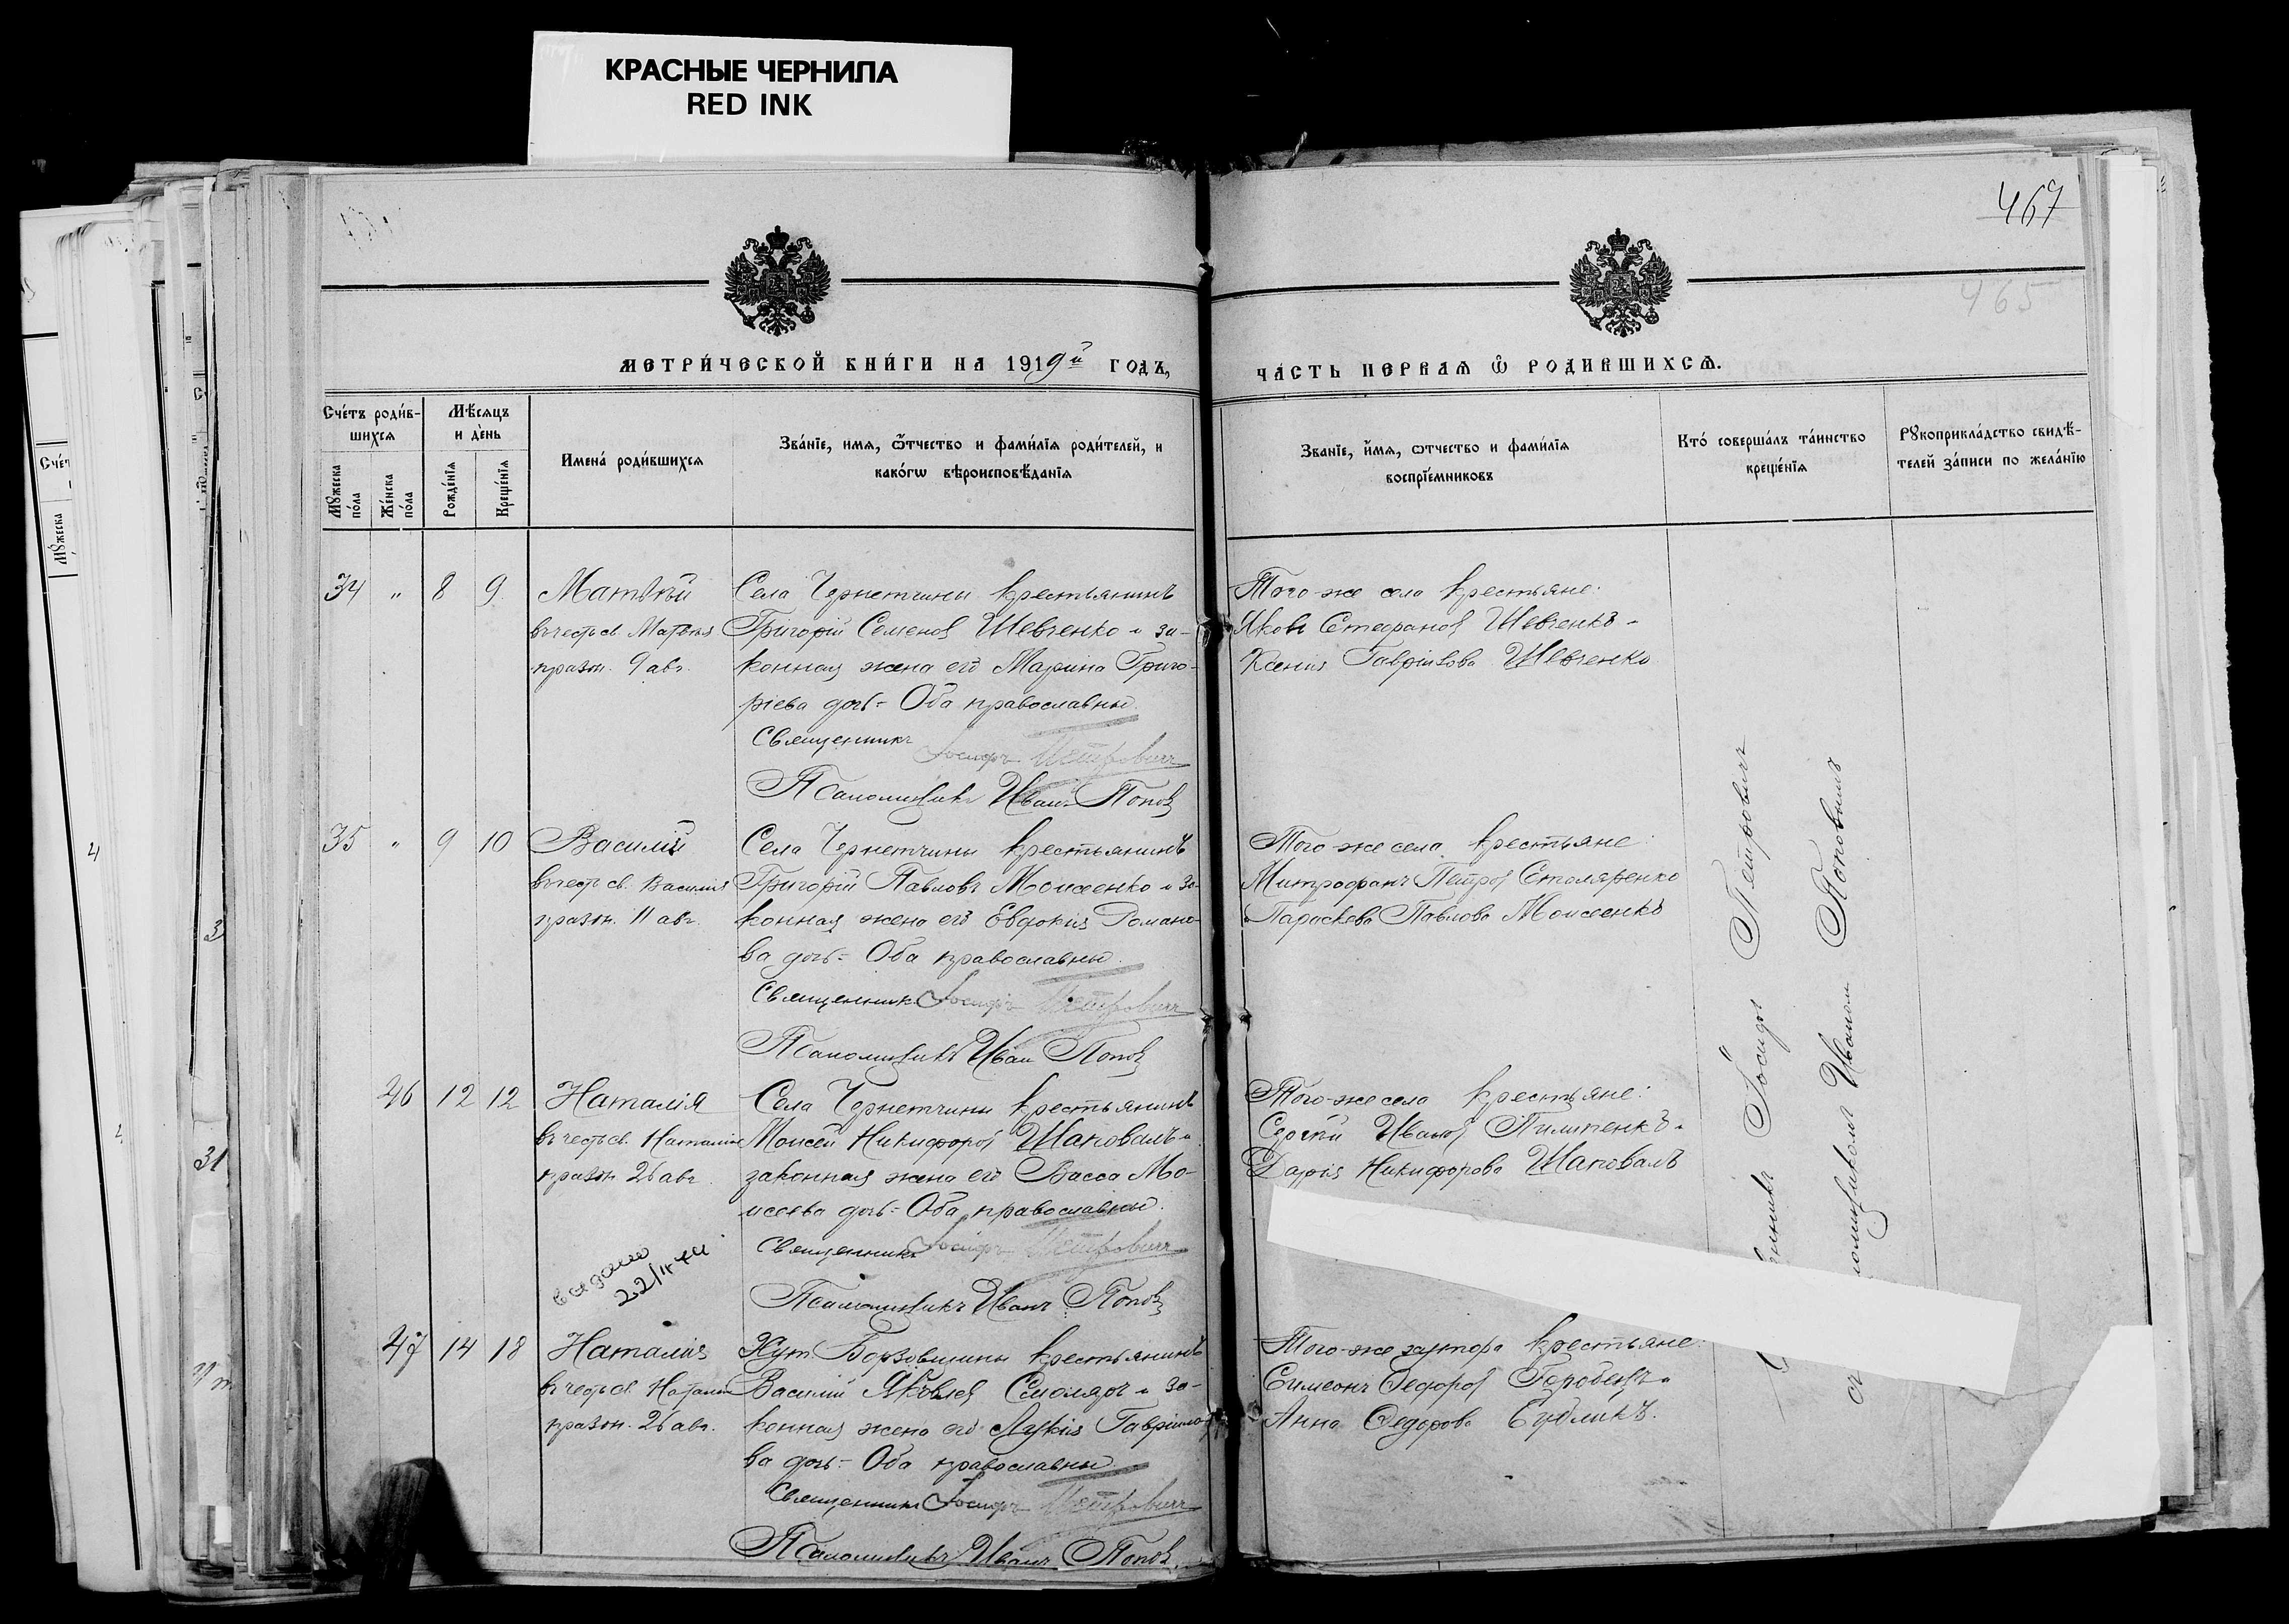 КРАСНЫЕ ЧЕРНИЛА
RED INK
467
465
МЕТРИ́ЧЕСКОЙ КНИ́ГИ НА 1919й ГОДЪ,
ЧА́СТЬ ПЕРВАѦ Ѡ РОДИВШИХСѦ.
Сче́тъ роди́в-
шихсѧ
Мꙋжеска по́ла
Же́нска по́ла
Мѣ́сѧцъ
и де́нь
Рожде́нїѧ
Креще́нїѧ
Имена́ роди́вшихсѧ
Зва́нїе, имѧ, ѿтчество и фами́лїѧ роди́телей, и
како́гѡ вѣроисповѣ́данїѧ
Зва́нїе, и́мѧ, ѿтчество и фами́лїѧ
воспрїе́мниковъ
Кто́ соверша́лъ та́инство
креще́нїѧ
Рꙋкоприкла́дство свидѣ́-
телей за́писи по жела́нїю
34 " 8 9
Матѳѣй
въ честь св. Матѳея
празн. 9 авг.
Села Чернетчины крестьянинъ
Григорій Семеновъ Шевченко и за-
конная жена его Марина Григо-
ріева дочь - Оба православны.
Священникъ Іосифъ Петровичъ
Псаломщикъ Иванъ Поповъ
Того-же села крестьяне:
Яковъ Стефановъ Шевченко и
Ксенія Гавріилова Шевченко
35 " 9 10
Василій
въ честь св. Василія
празн. 11 авг.
Села Чернетчины крестьянинъ
Григорій Павловъ Моисеенко и за-
конная жена его Евдокія Романо-
ва дочь - Оба православны.
Священникъ Іосифъ Петровичъ
Псаломщикъ Иванъ Поповъ
Того-же села крестьяне
Митрофанъ Петровъ Столяренко
и Параскева Павлова Моисеенко
46 12 12
Наталія
въ честь св. Наталіи
празн. 26 авг.
Села Чернетчины крестьянинъ
Моисей Никифоровъ Шаповалъ и
законная жена его Васса Мо-
исеева дочь - Оба православны.
Священникъ Іосифъ Петровичъ
Псаломщикъ Иванъ Поповъ
Того-же села крестьяне:
Сергій Ивановъ Пилипенко и
Дарія Никифорова Шаповалъ
выдано
47 14 18
Наталія
въ честь св. Наталіи
празн. 26 авг.
Хут. Борзовщины крестьянинъ
Василій Яковлевъ Смоляръ и за-
конная жена его Лукія Гавріило-
ва дочь - Оба православны
Священникъ Іосифъ Петровичъ
Псаломщикъ Иванъ Поповъ.
Того-же хутора крестьяне:
Симеонъ Федоровъ
Анна Федорова
Іосифъ Петровичъ
Иваномъ Поповымъ
Сче́т
Мꙋжеска
31